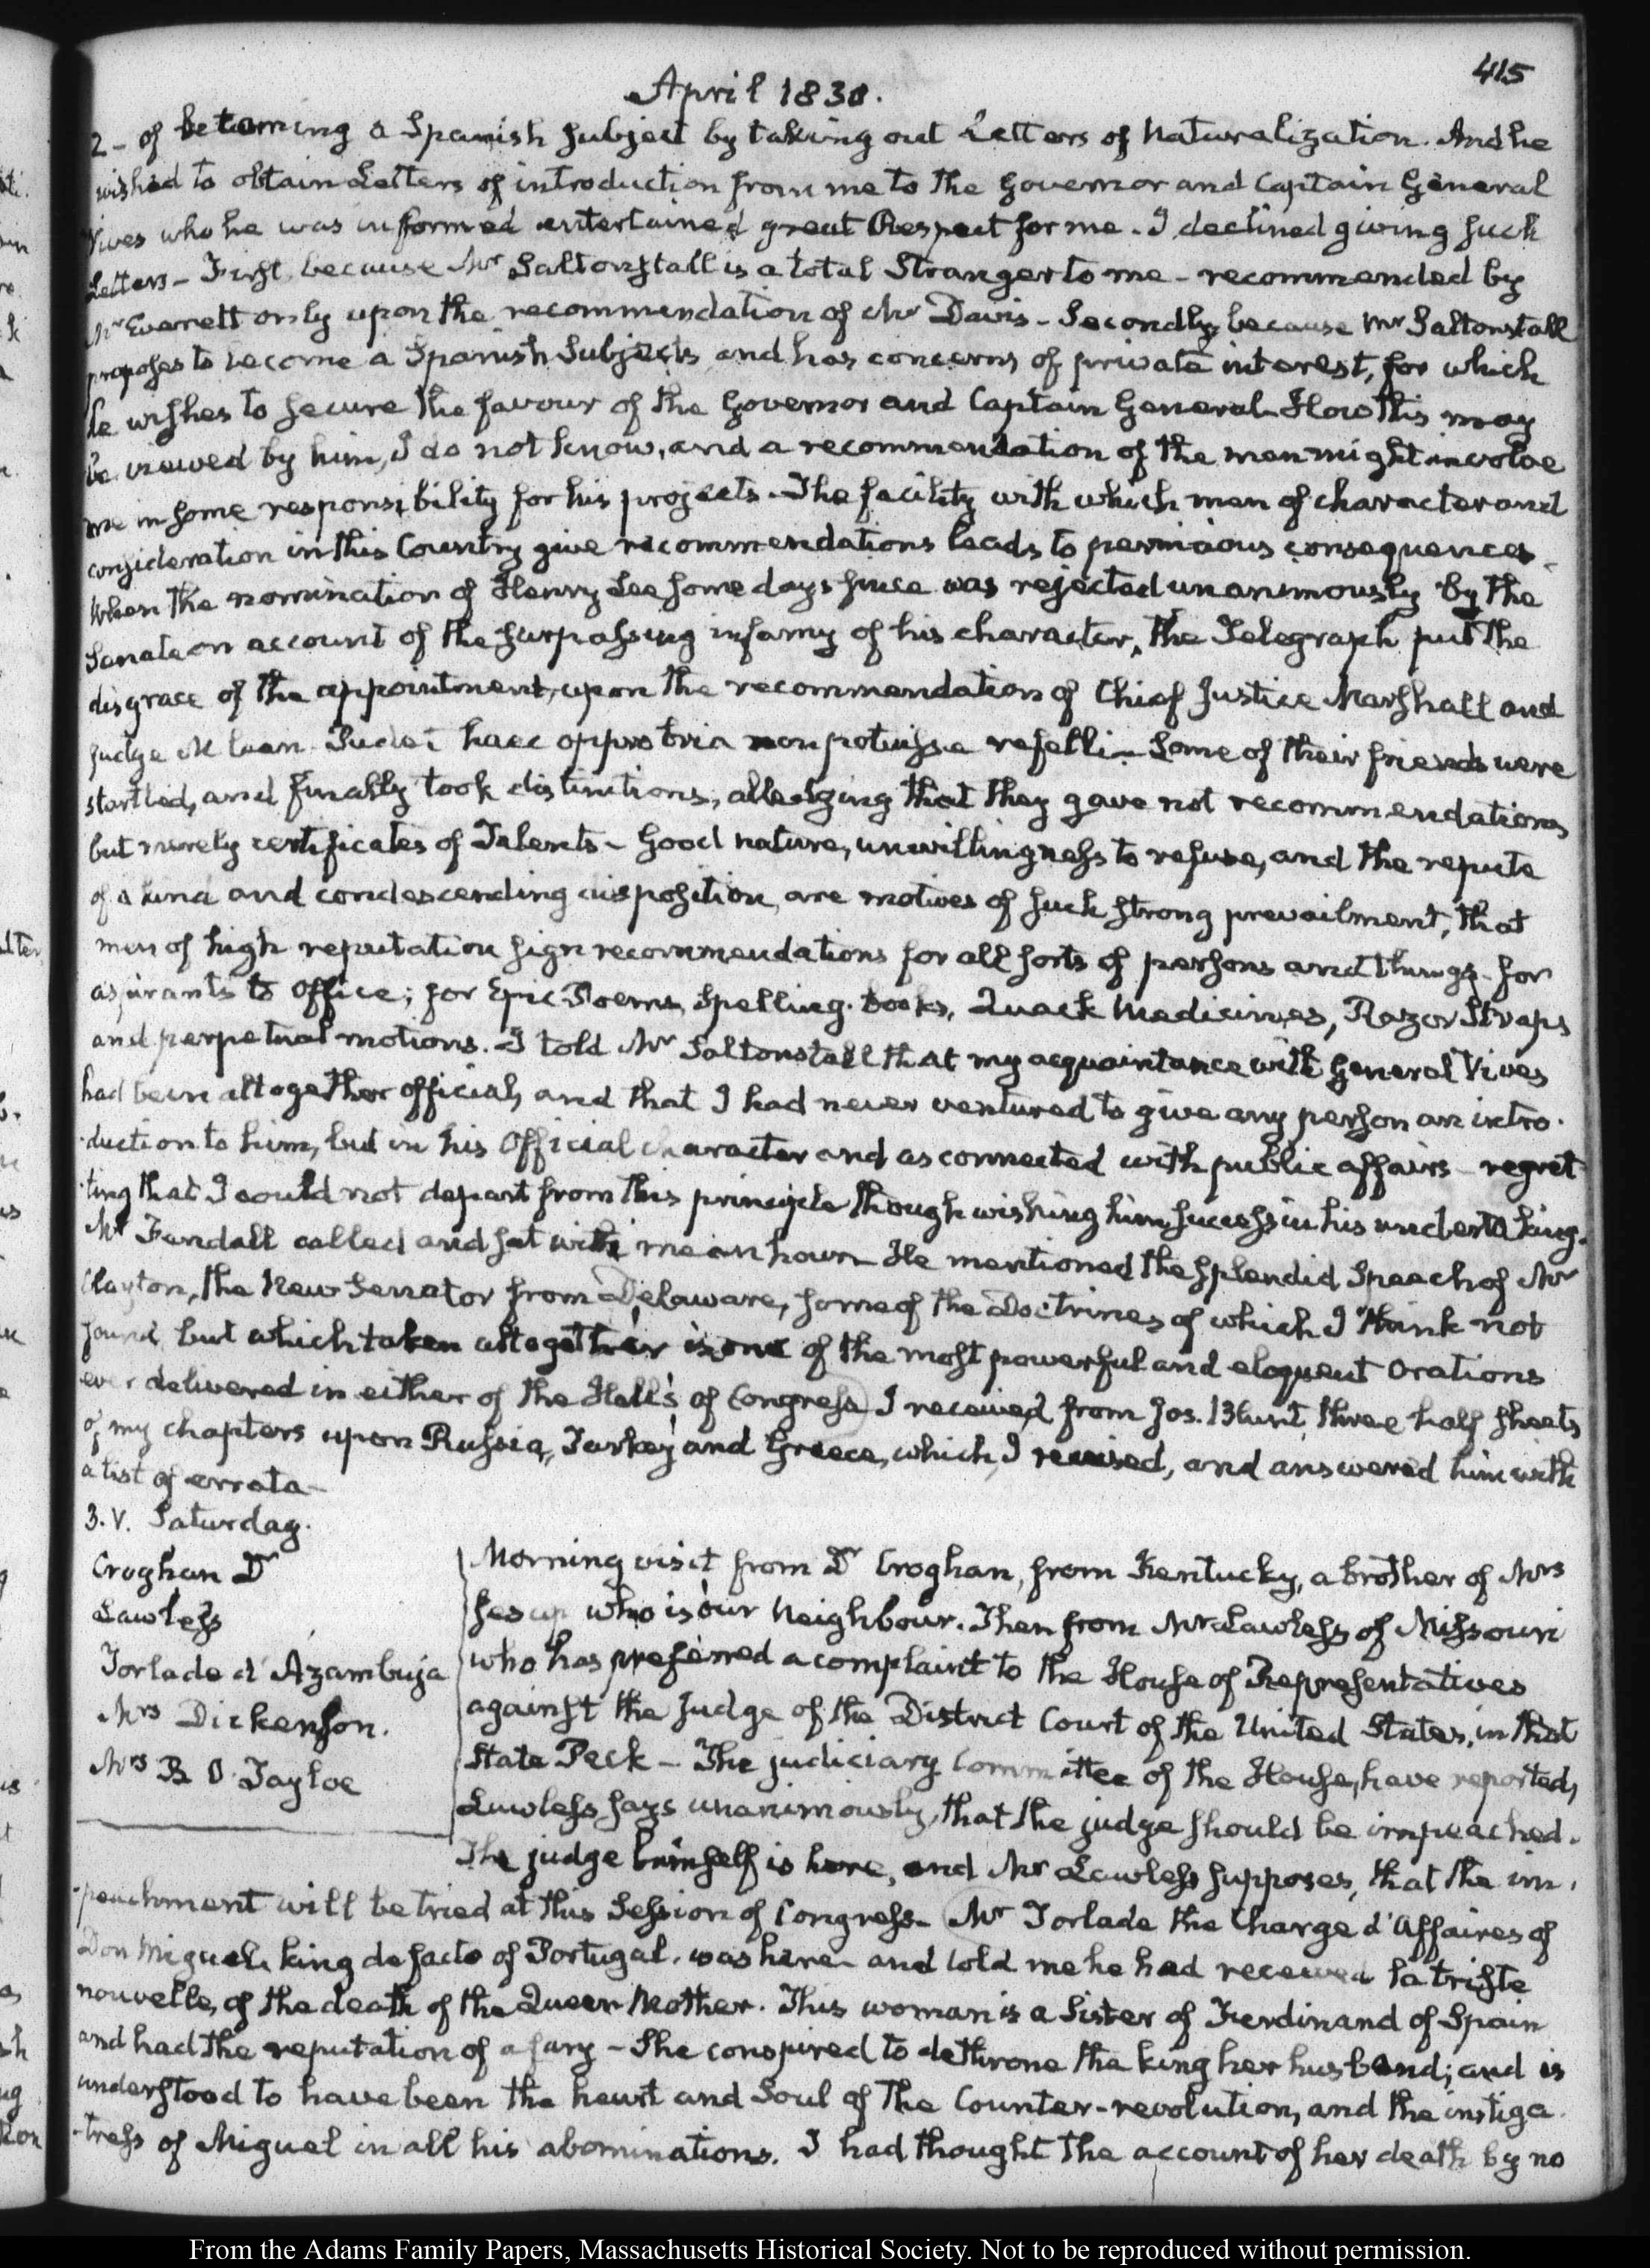 415
April 1830.
2 - of becoming a Spanish Subject by taking out Letters of Naturalization. And he
wished to obtain Letters of introduction from me to the Governor and Captain General
Vives who he was informed entertained great Respect for me. I declined giving such
Letters - First because Mr Saltonstall is a total Stranger to me - recommended by
Mr Everett only upon the recommendation of Mr Davis - Secondly because Mr Saltonstall
proposes to become a Spanish Subject, and has concerns of private interest, for which
he wishes to secure the favour of the Governor and Captain General - How this may
be viewed by him, I do not know, and a recommendation of the man might involve
me in some responsibility for his projects. The facility with which men of character and
consideration in this Country give recommendations leads to pernicious consequences.
When the nomination of Henry Lee some days since was rejected unanimously by the
Senate on account of the surpassing infamy of his character, the Telegraph put the
disgrace of the appointment, upon the recommendation of Chief Justice Marshall and
Judge McLean. Pudet haec opprobria non potuisse refelli - Some of their friends were
startled, and finally took distinctions, alledging that they gave not recommendations
but merely certificates of Talents - Good nature, unwillingness to refuse, and the repute
of a kind and condescending disposition, are motives of such strong prevailment, that
men of high reputation sign recommendations for all sorts of persons and things - for
aspirants to Office; for Epic Poems, Spelling-books, Quack Medicines, Razor Straps
and perpetual motions. I told Mr Saltonstall that my acquaintance with General Vives
had been altogether official, and that I had never ventured to give any person an intro-
-duction to him, but in his Official character and as connected with public affairs - regret-
-ting that I could not depart from this principle though wishing him success in his undertaking.
Mr Fendall called and sat with me an hour - He mentioned the splendid Speech of Mr
Clayton, the New Senator from Delaware, some of the Doctrines of which I think not
sound but which taken altogether is one of the most powerful and eloquent Orations
ever delivered in either of the Halls of Congress I received from Jos. Blunt three half sheets
of my chapters upon Russia, Turkey and Greece, which I revised, and answered him with
a list of errata -
3. V. Saturday.
Croghan Dr
Lawless
Torlade d'Azambuja
Mrs Dickenson.
Mrs B O Tayloe
Morning visit from Dr Croghan, from Kentucky, a brother of Mrs
Jesup who is our Neighbour. Then from Mr Lawless of Missouri
who has preferred a complaint to the House of Representatives
against the Judge of the District Court of the United States, in that
State Peck - The judiciary Committee of the House, have reported,
Lawless says unanimously, that the judge should be impeached.
The judge himself is here, and Mr Lawless supposes, that the im-
-peachment will be tried at this Session of Congress - Mr Torlade the Charge d'Affaires of
Don Miguel, king de facto of Portugal, was here - and told me he had received la triste
nouvelle, of the death of the Queen Mother. This woman is a Sister of Ferdinand of Spain
and had the reputation of a fury - She conspired to dethrone the king her husband; and is
understood to have been the heart and Soul of the Counter-revolution, and the instiga-
-tress of Miguel in all his abominations. I had thought the account of her death by no
From the Adams Family Papers, Massachusetts Historical Society. Not to be reproduced without permission.